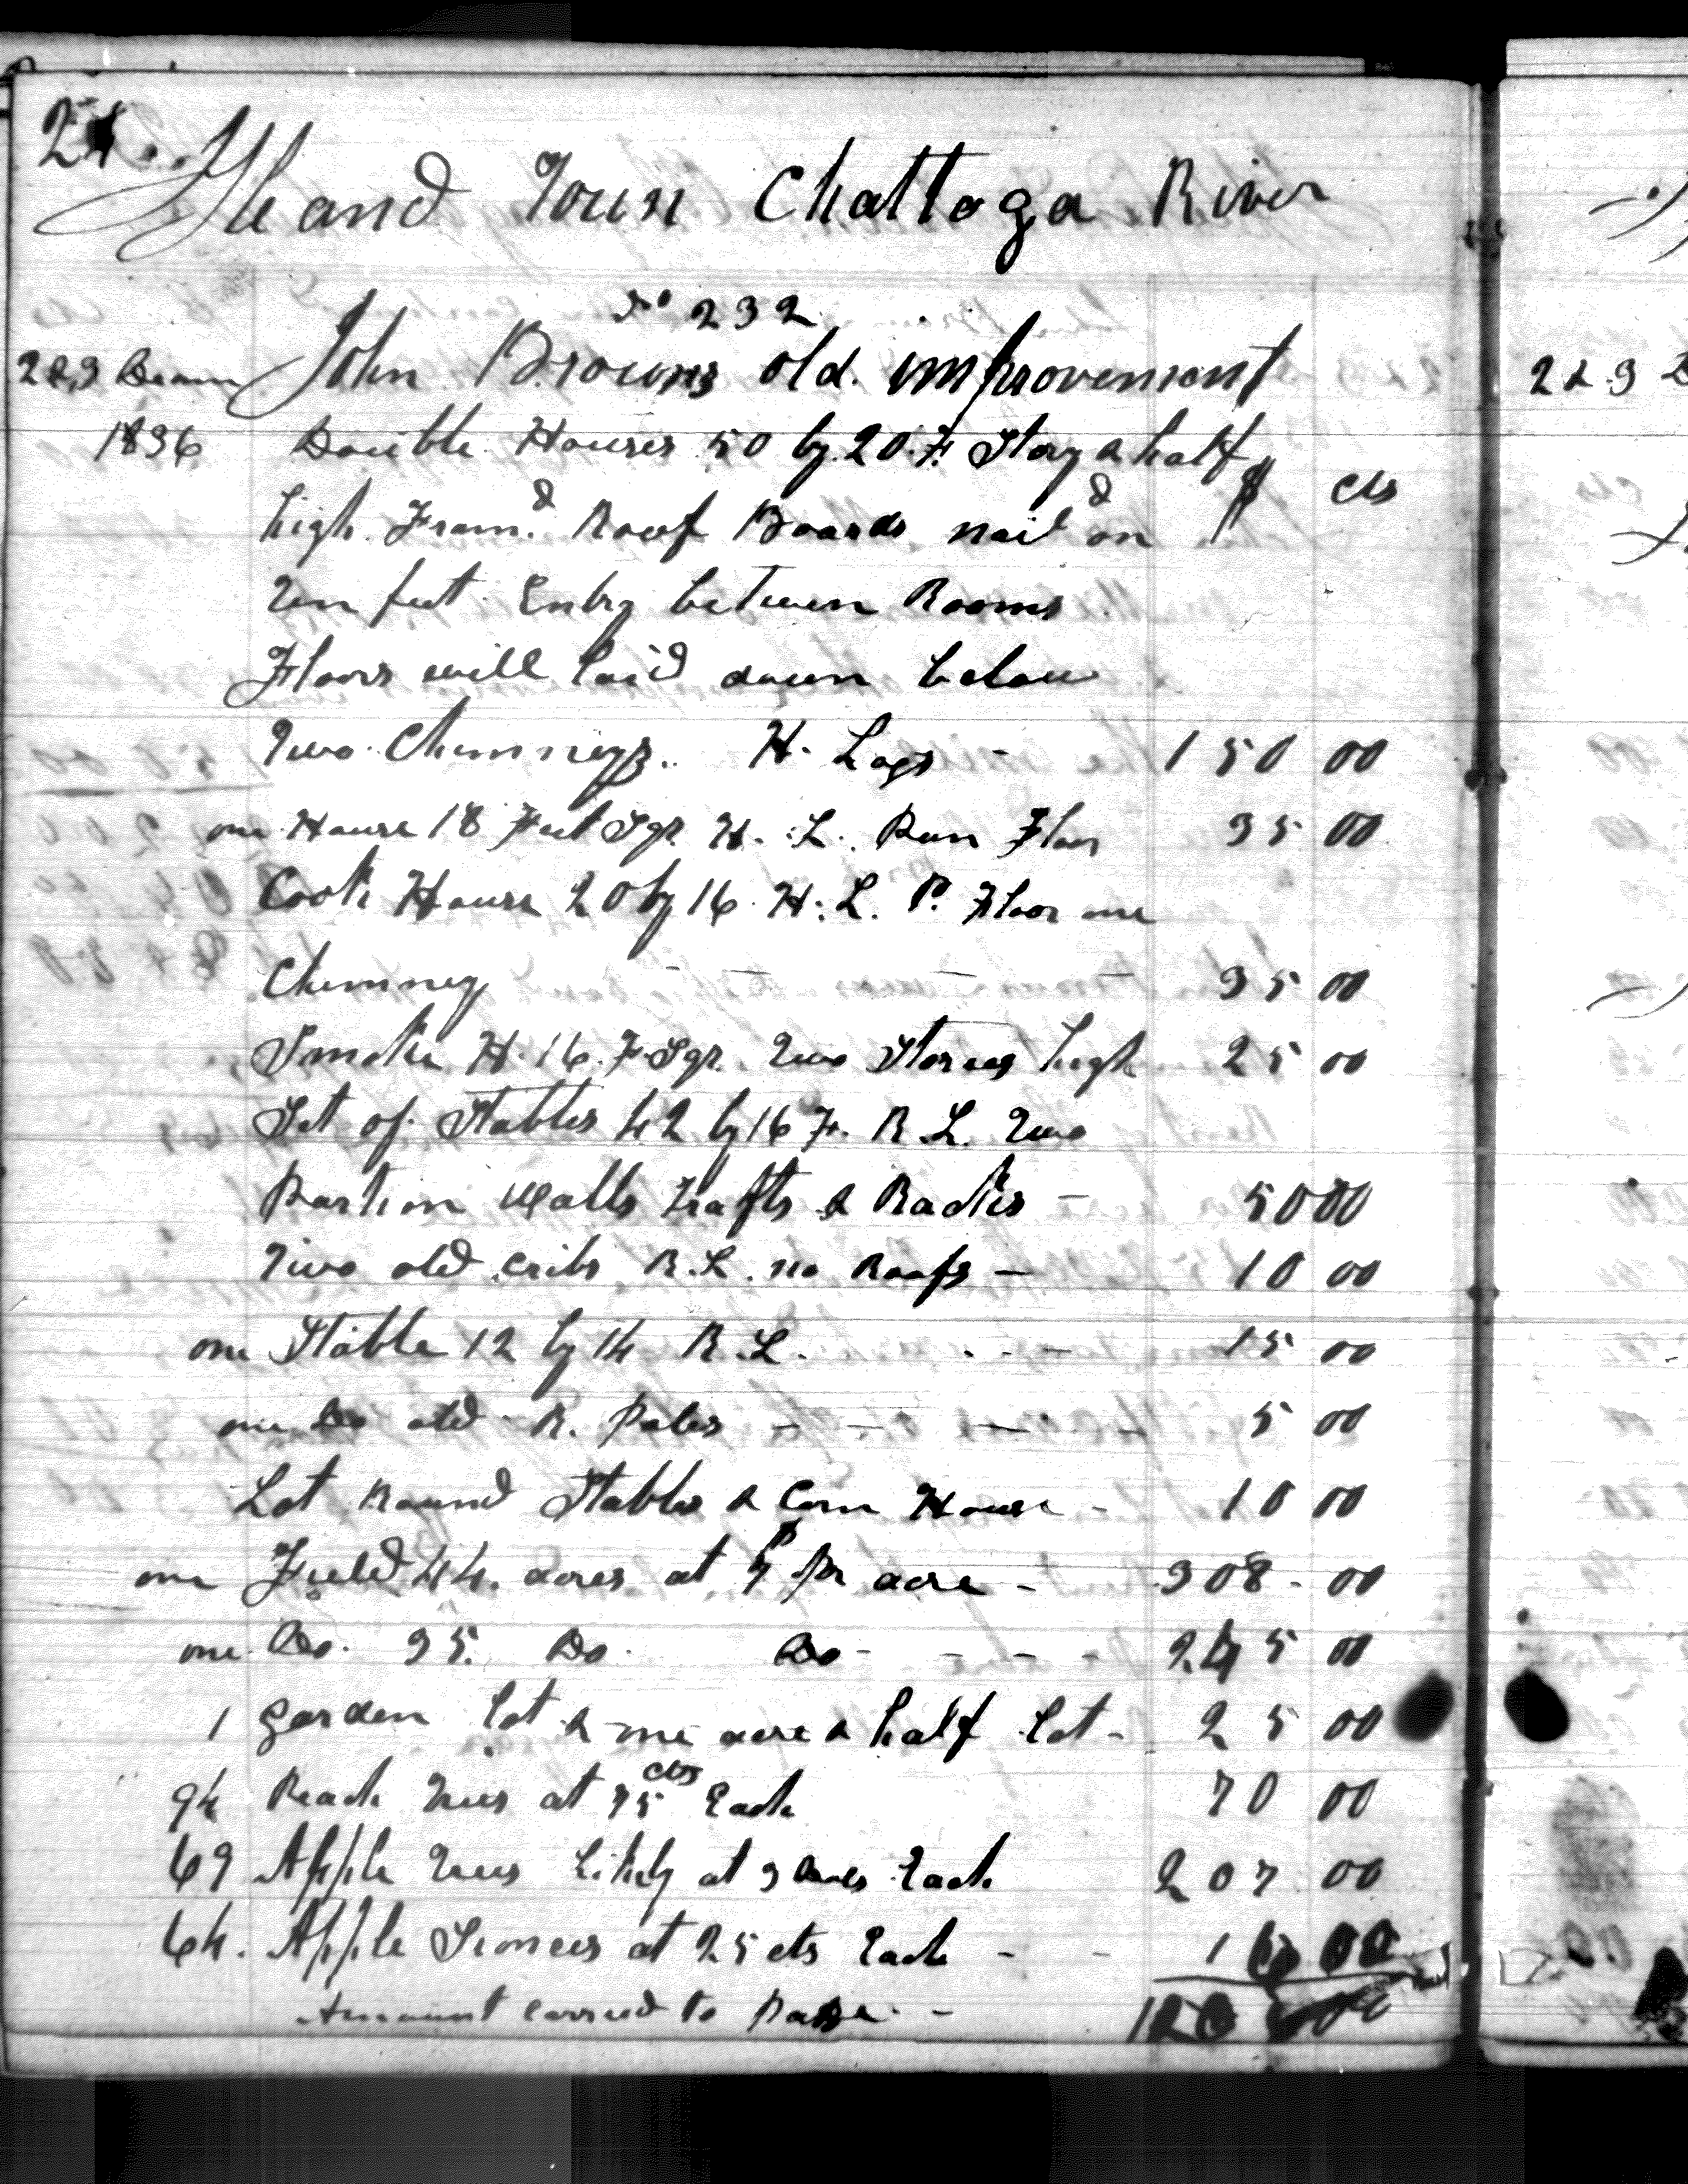 Island Town Chattoga River
No 232
John Browns old improvement
1836 Double Houses 50 by 20 F Story & half
$ cts
high Framd Roof Boards naild on
Ten feet Entry between Rooms
Floors well laid down below
Two Chimneys H. Logs - 150 00
one House 18 Feet Sqr H. L. Pun Floor 35 00
Cook House 20 by 16 H. L. P. Floor one
Chimney - - - - 35 00
Smoke H. 16. F. Sqr. Two Stories high 25 00
Set of Stables 42 by 16 F. R. L. Two
Partion Walls & Racks - 50 00
Two old cribs R. L. no Roofs - 10 00
one Stable 12 by 14 R. L. - - - 15 00
one Do old R. Poles - - - - 5 00
Lot Round Stables & Corn House - 10 00
one Field 44. acres at $7 Pr acre - 308 - 00
one Do. 35. Do. Do - - - - 245 00
1 garden lot & one acre & half lot - 25 00
94 Peach Trees at 75 cts Each 70 00
69 Apple Trees Likely at 3 Each 207 00
64. Apple at 25 cts Each - - 16 00
Amount carried to -
223
cts